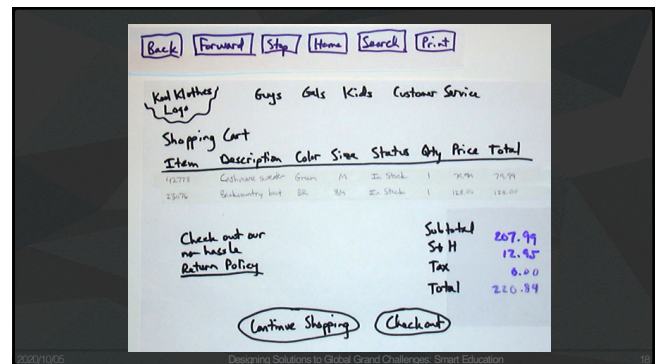 Back Forward Stop Home Search Print
Kool Klothes Logo Guys Gals Kids Customer Service
Shopping Cart
Item Description Color Size Status Qty Price Total
42773 Cashmere sweater Green M In Stock 1 79.99 79.99
23076 Backcountry boot BR 8½ In Stock 1 128.00 128.00
Check out our
no-hassle
Return Policy
Subtotal 207.99
S+H 12.95
Tax 0.00
Total
Continue Shopping Checkout
2020/10/05 Designing Solutions to Global Grand Challenges: Smart Education 18